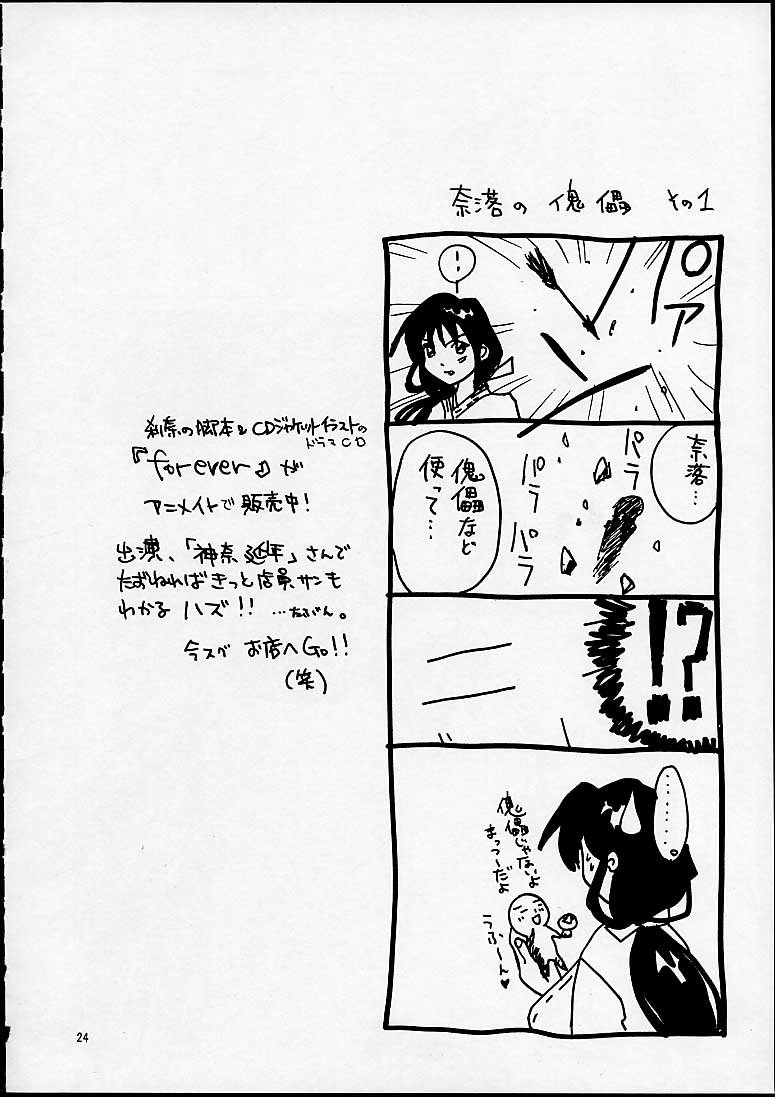 奈落の傀儡 その1
!
パァン
奈落…
パラ
パラ
パラ
傀儡など
使って…
!?
………。
傀儡じゃないよ
まっつーだよ
うふーん♥
刹奈の脚本&CDジャケットイラストの
ドラマCD
『forever』が
アニメイトで販売中!
出演、「神奈延年」さんで
たずねればきっと店員サンも
わかるハズ!! …たぶん。
今スグお店へGo!!
(笑)
24